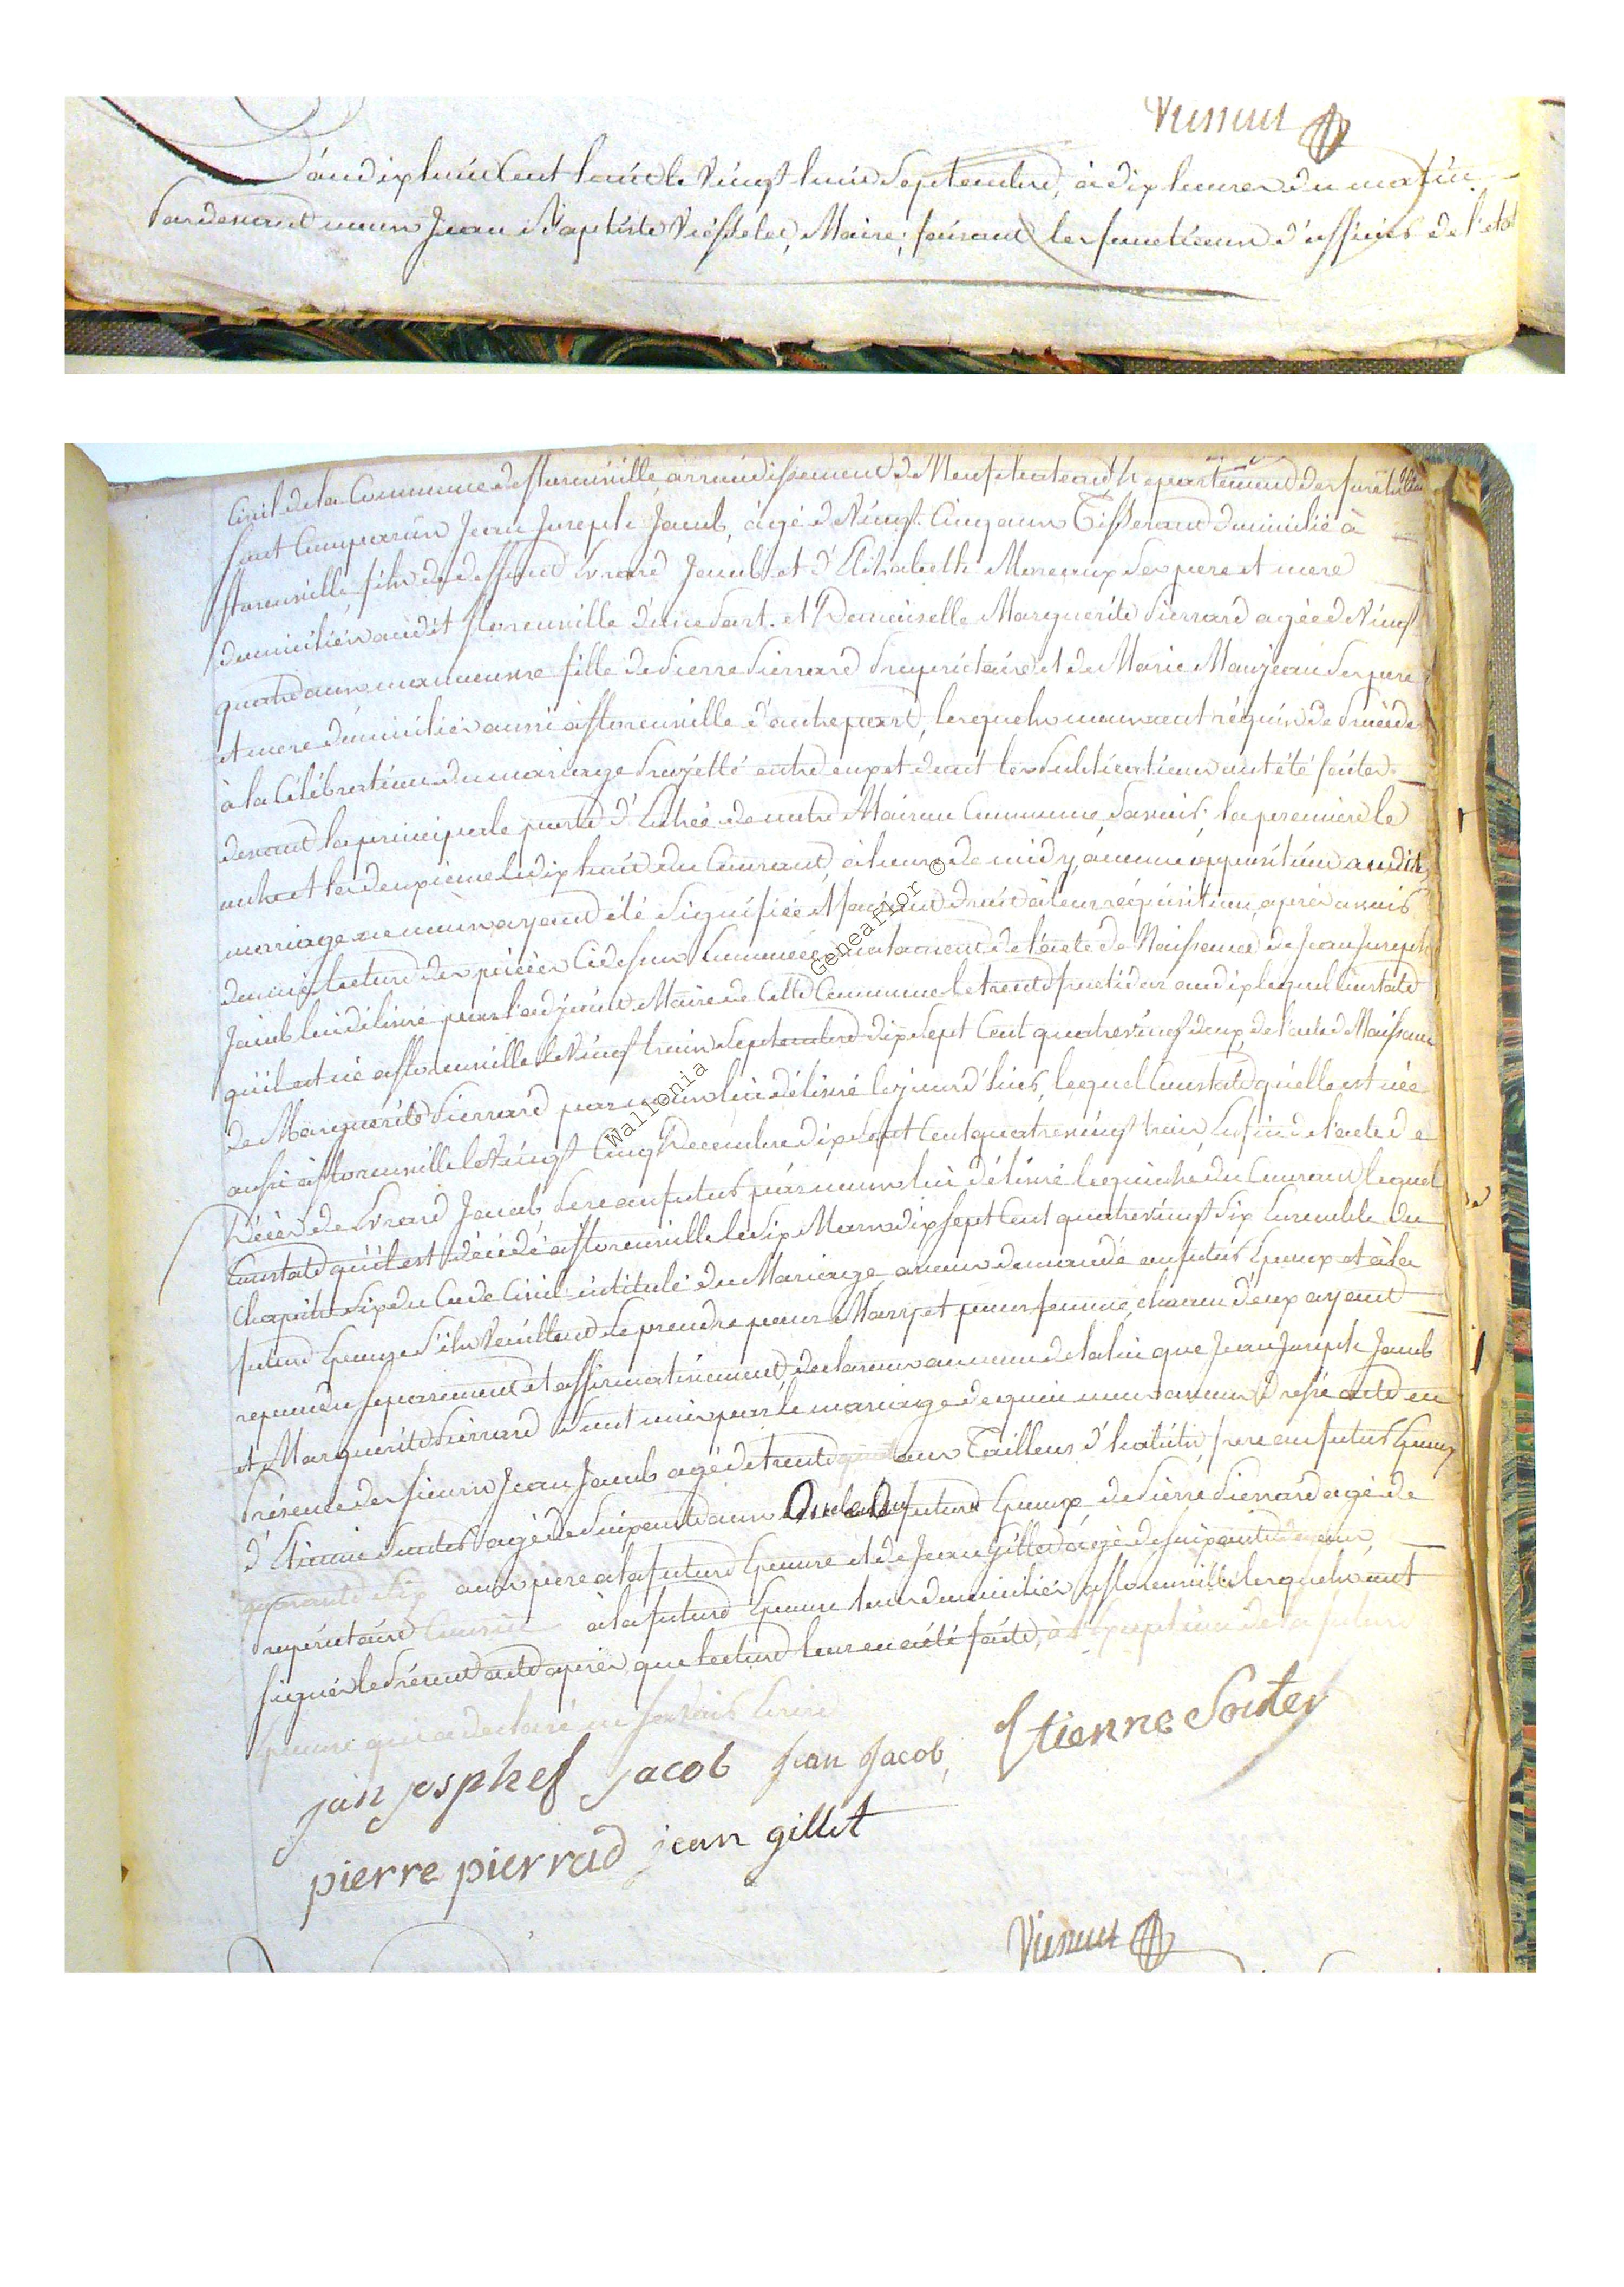 L'an dix huit cent huit le vingt huit Septembre, à dix heures du matin
Pardevant nous Jean Baptiste Maire, faisant les fonctions d'officier de l'etat
Civil de la Commune de florenville arrondissement de Neufchateau Departement des forets
sont Comparus Jean Joseph Jacob, agé de Vingt Cinq ans Tisserand domicilié à
florenville fils de deffunt Evrard Jacob et d'Elisabeth Moreaux Ses pere et mere
domiciliés audit florenville d'une part. et Demoiselle Marguerite Pierrard agée de Vingt
quatre ans fille de Pierre Pierrard Propriétaire et de Marie Manjean Ses pere
et mere domiciliés aussi à florenville d'autre part, lesquels nous ont réquis de Procéder
à la Célébration du mariage Projetté entre eux et dont les Publications ont été faites
devant la principale porte d'Entrée de notre Maison Commune, Savoir, la premiere le
onze et la deuxieme le dix huit du Courant, à heure de midy, aucune opposition audit
mariage ne nous ayant été Signifiée et faisant droit à leur réquisition, après avoir
donné lecture des pièces Cidessus de l'acte de Naissance de Jean Joseph
Jacob lui délivré par l'adjoint Maire de Cette Commune le trente fructidor an dix lequel Constate
qu'il est né a florenville le Vingt trois Septembre dix Sept Cent quatre vingt deux, de l'acte de Naissance
de Marguerite Pierrard par nous lui délivré le jour d'hier, lequel Constate qu'elle est née
aussi à florenville le Vingt Cinq Decembre dix Sept Cent quatre vingt trois, Enfin de l'acte de
Décès de Evrard Jacob Pere au futur par nous lui délivré le quinze du Courant lequel
Constate qu'il est décédé a florenville le Six Mars dix Sept Cent quatre vingt Six Ensemble du
Chapitre Six du Code Civil intitulé du Mariage, avons demandé au futur Epoux et à la
future Epouse S'ils Veuillent Se prendre pour Mary et pour femme, chacun d'eux ayant
repondu Separement et affirmativement, declarons au nom de la loi que Jean Joseph Jacob
et Marguerite Pierrard Sont unis par le mariage de quoi nous avons dressé acte en
Présence des sieurs Jean Jacob agé de trente ans Tailleur d'habits, frere au futur Epoux
d'Etienne agé de Soixante ans Oncle du futur Epoux de Pierre Pierrard agé de
quarante Six ans pere a la future Epouse et de Jean Gillet agé de Soixante ans,
Propriétaire Cousin à la future Epouse tous domiciliés a florenville lesquels ont
signé le Présent acte après que lecture leur en a été faite, à l'Exception de la future
Epouse qui a declaré ne Savoir Ecrire
jan josphef jacob jean Jacob, Etienne Souter
pierre pierrad jean gillet
Wallonia Geneaflor ©